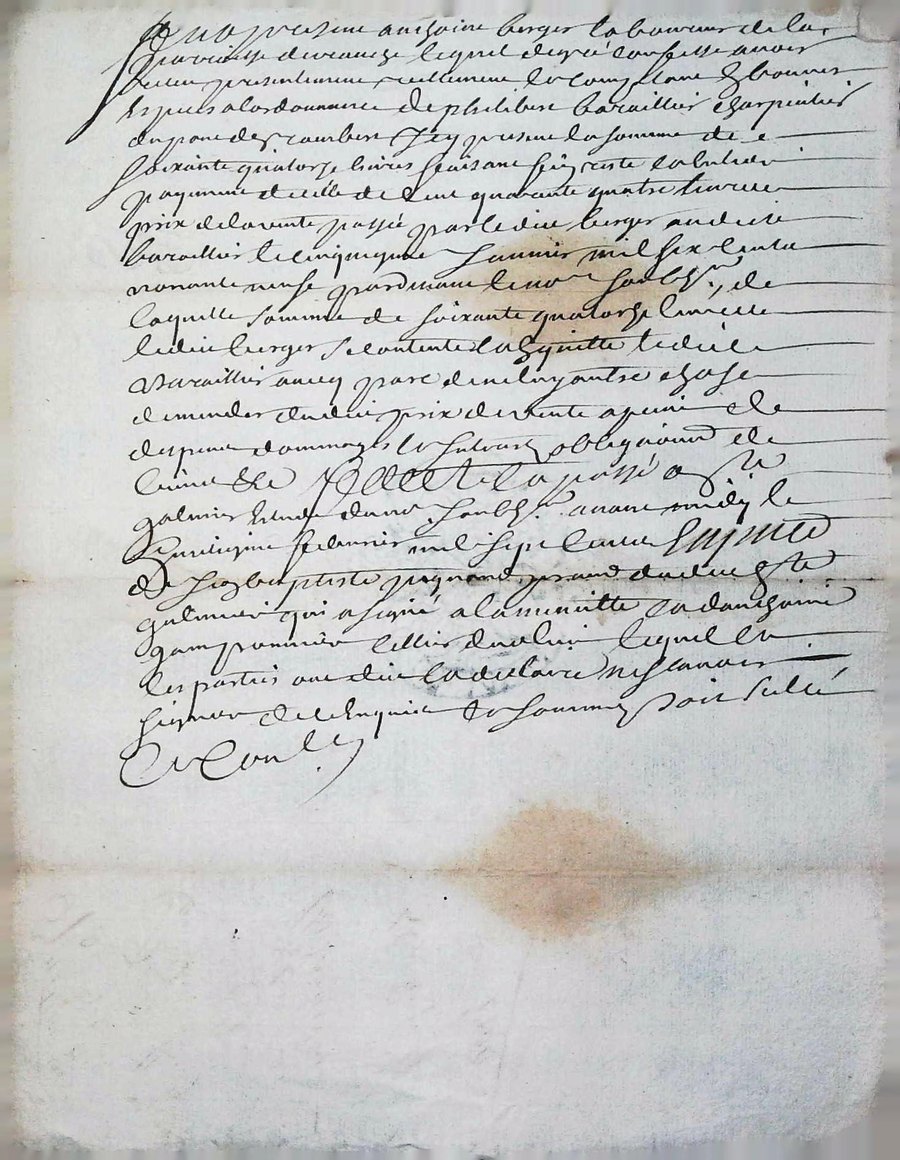 present anthoine berger laboureur de la
parroisse de lequel de gré confesse avoir
receu presentement reellement et comptant en bonnes
especes a lordonnance de philibert baraillier charpentier
du pont de st rambert icy present la somme de
soixante quatorze livres faisant fin reste et entier
payement de celle de cent quarante quatre livres
prix de la vente passée par ledit berger audict
baraillier le cinquiesme janvier mil six cents
nonante neufz pardevant le nore soubzne, de
laquelle somme de soixante quatorze livres
ledict berger se contente et en quitte ledict
baraillier avecq pact de ne luy autre chose
demander dudict prix de vente a peine de
despens dommages et interest obligations de
biens &c faict et passé a st
galmier estude du nore soubzne avant midy le
febvrier mil sept cents en presence
de jean baptiste dudict st
galmier qui a signé a la minutte et danthoine
sellier dudict lieu lequel et
les parties ont dict et declaré ne scavoir
signer de ce enquis et sommés soit scellé